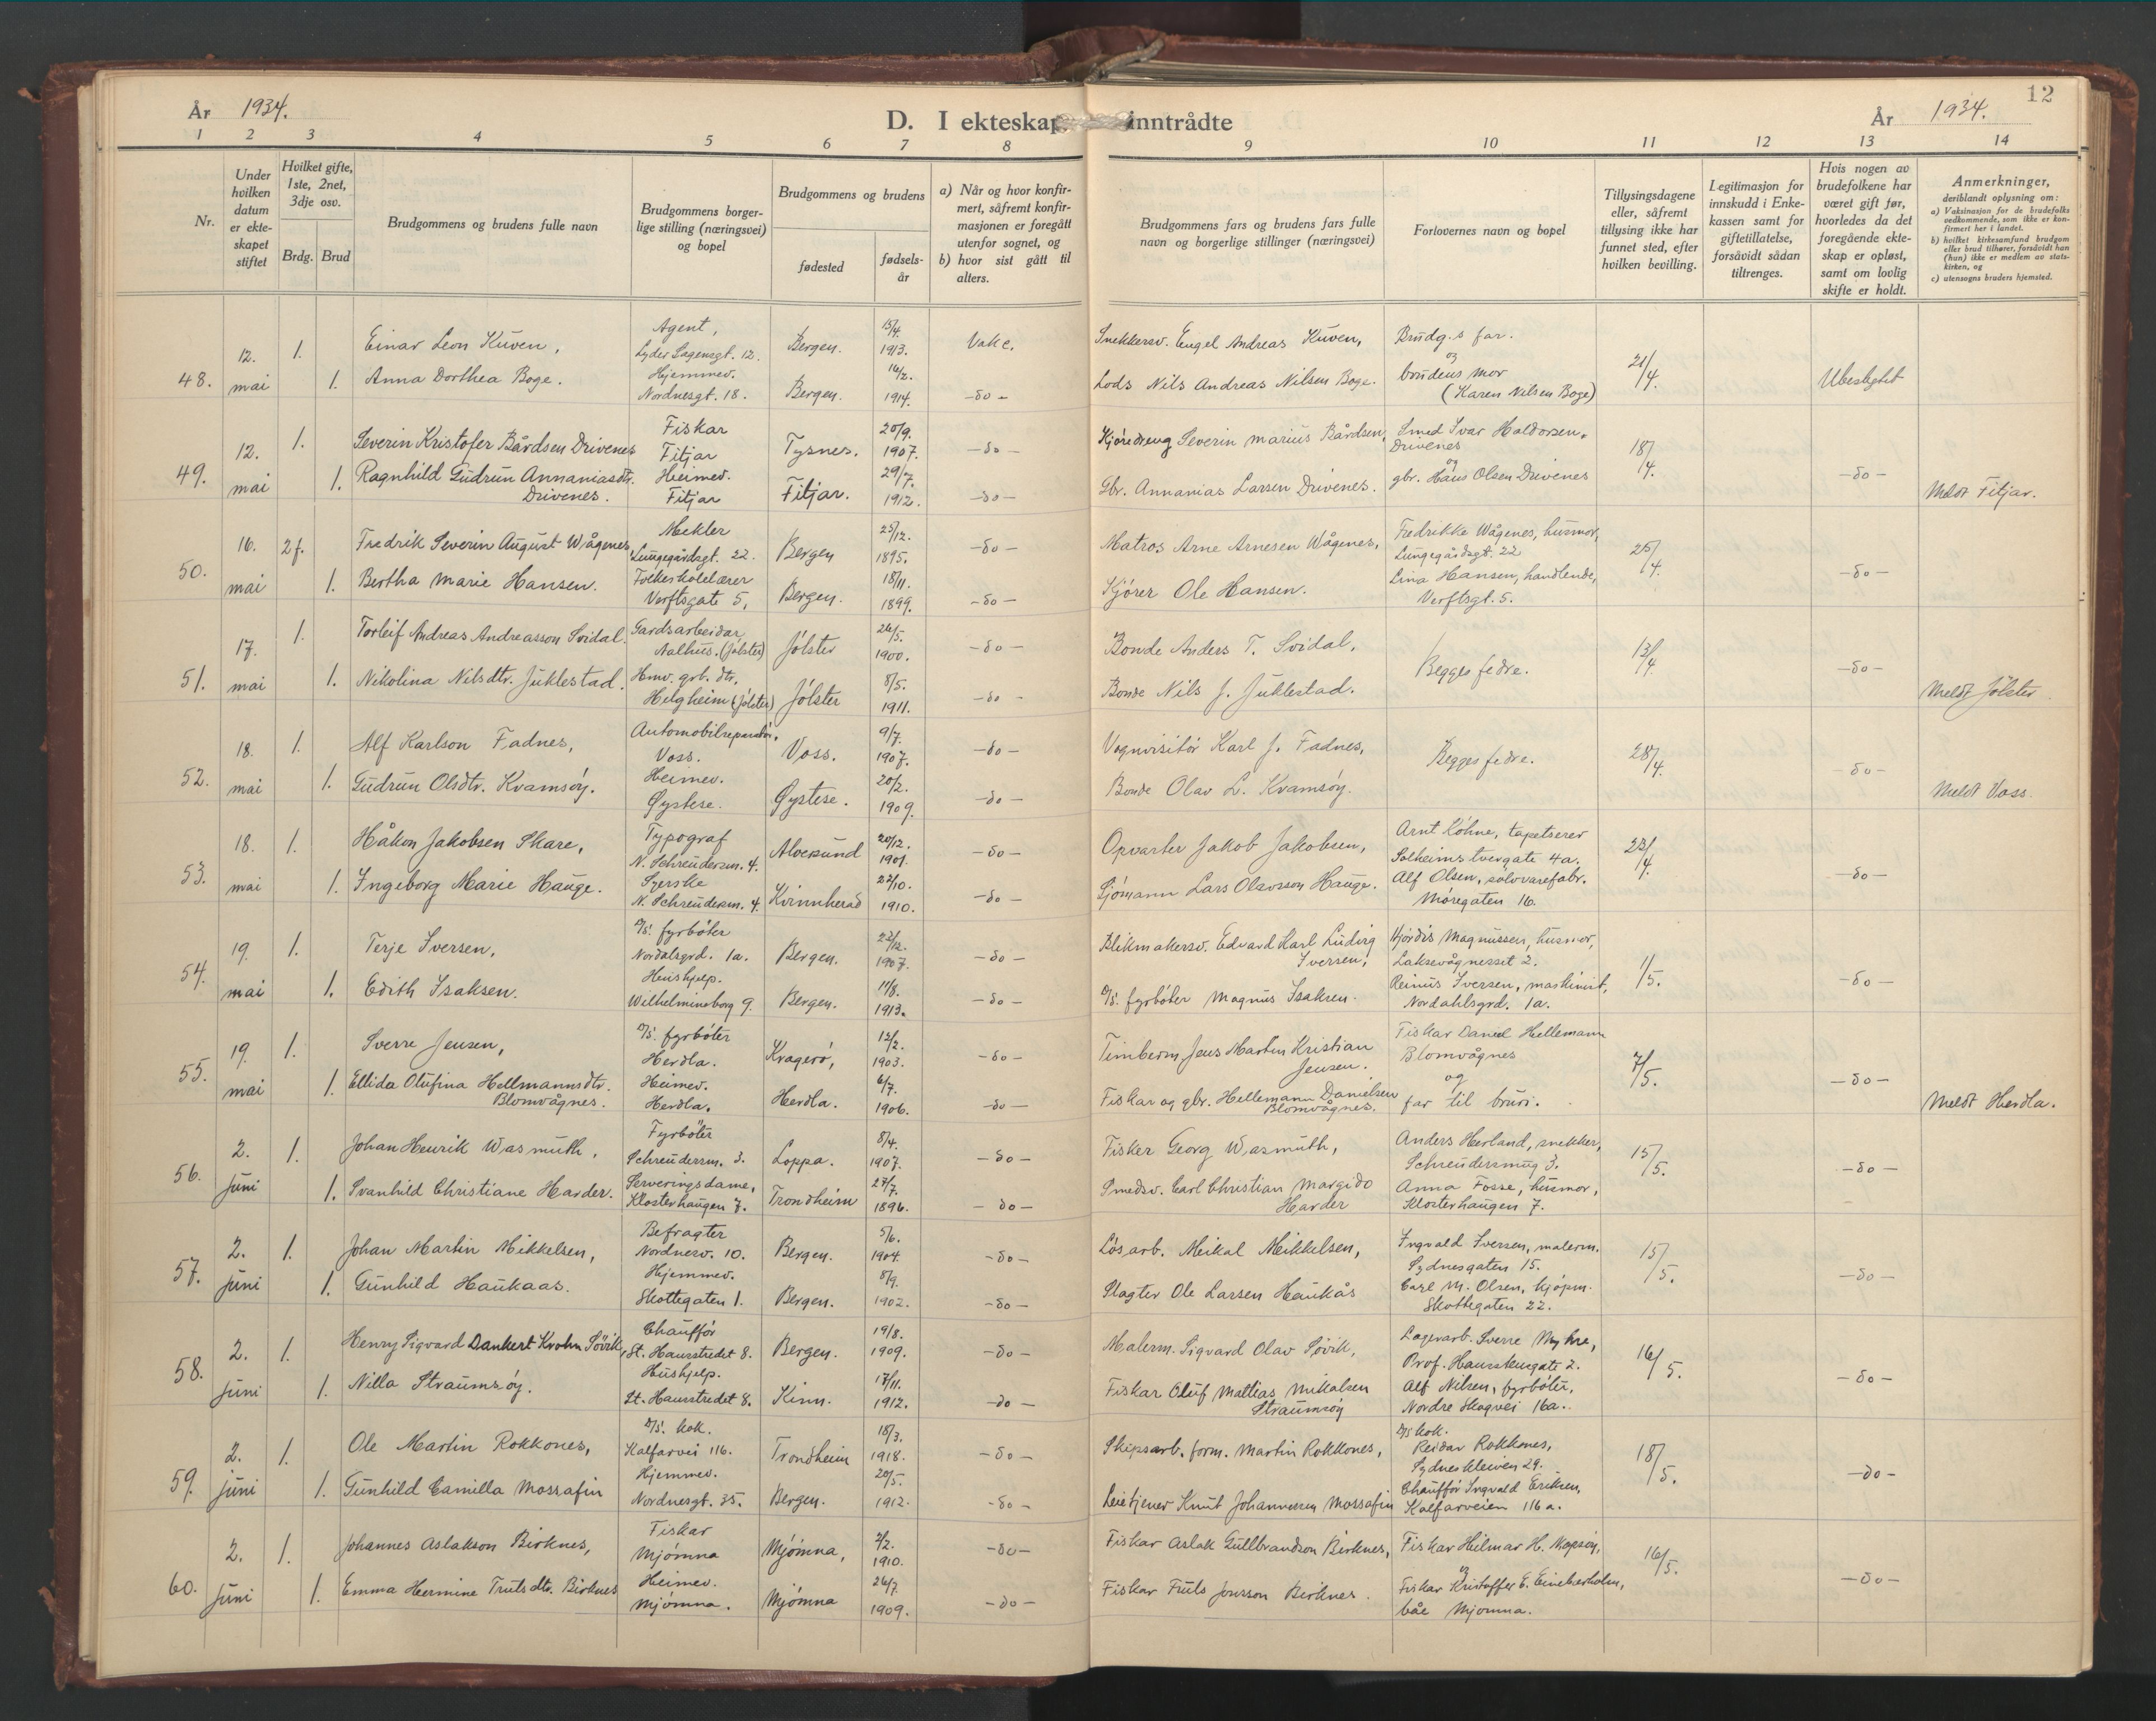 År 1934.
D. I ekteskap inntrådte
År 1934.
12
1 2 3 4 5 6 7 8 9 10 11 12 13 14
Nr.
Under hvilken datum er ekteskapet stiftet
Hvilket gifte, 1ste, 2net, 3dje osv.
Brdg. Brud
Brudgommens og brudens fulle navn
Brudgommens borgerlige stilling (næringsvei) og bopel
Brudgommens og brudens
fødested
fødselsår
a) Når og hvor konfirmert, såfremt konfirmasjonen er foregått utenfor sognet, og
b) hvor sist gått til alters.
Brudgommens fars og brudens fars fulle navn og borgerlige stillinger (næringsvei)
Forlovernes navn og bopel
Tillysingsdagene eller, såfremt tillysing ikke har funnet sted, efter hvilken bevilling.
Legitimasjon for innskudd i Enkekassen samt for giftetillatelse, forsåvidt sådan tiltrenges.
Hvis nogen av brudefolkene har været gift før, hvorledes da det foregående ekteskap er opløst, samt om lovlig skifte er holdt.
Anmerkninger, deriblandt oplysning om:
a) Vaksinasjon for de brudefolks vedkommende, som ikke er konfirmert her i landet.
b) hvilket kirkesamfund brudgom eller brud tilhører, forsåvidt han (hun) ikke er medlem av statskirken, og
c) utensogns bruders hjemsted.
48. 12. mai
1. Einar Leon Kuven, Agent, Lyder Sagensgt. 12. Bergen. 15/4. 1913. Vakc. Snekkersv. Engel Andreas Kuven, Brudg.s far.
1. Anna Dorthea Boge. Hjemmev. Nordnesgt. 18. Bergen. 16/2. 1914. -do- Lods Nils Andreas Nilsen Boge. og brudens mor (Karen Nilsen Boge) 21/4. Ubeslegtet
49. 12. mai
1. Severin Kristofer Bårdsen Drivenes Fiskar Fitjar Tysnes. 20/9. 1907. -do- Kjøredreng Severin Marius Bårdsen, Smed Ivar Haldorsen, Drivenes
1. Ragnhild Gudrun Annaniasdtr. Drivenes. Heimev. Fitjar Fitjar. 29/7. 1912. -do- Gbr. Annanias Larsen Drivenes. og gbr. Hans Olsen Drivenes 18/4. -do- Meldt Fitjar.
50. 16. mai
2 f. Fredrik Severin August Wågenes, Mekler Lungegårdsgt. 22. Bergen 25/12. 1895. -do- Matros Arne Arnesen Wågenes, Fredrikke Wågenes, husmor, Lungegårdsgt. 22
1. Bertha Marie Hansen. Folkeskolelærer Verftsgate 5, Bergen. 18/11. 1899. -do- Kjører Ole Hansen. Lina Hansen, handlende, Verftsgt. 5. 25/4. -do-
51. 17. mai
1. Torleif Andreas Andreasson Svidal. Gardsarbeidar Aalhus. (Jølster) Jølster 24/5. 1900. -do- Bonde Anders T. Svidal.
1. Nikolina Nilsdtr. Juklestad. Hmv. grb. dtr. Helgheim (Jølster) Jølster 8/5. 1911. -do- Bonde Nils J. Juklestad. Begges fedre. 13/4. -do- Meldt Jølster.
52. 18. mai
1. Alf Karlson Fadnes, Automobilreparatør, Voss. Voss. 9/7. 1907. -do- Vognvisitør Karl J. Fadnes,
1. Gudrun Olsdtr. Kvamsøy. Heimev. Øystese. Øystese. 20/2. 1909. -do- Bonde Olav L. Kvamsøy. Begges fedre. 28/4. -do- Meldt Voss.
53. 18. mai
1. Håkon Jakobsen Skare, Typograf N. Schreudersm. 4. Alversund 20/12. 1901. -do- Opvarter Jakob Jakobsen, Arnt Köhne, tapetserer Solheimstvergate 4a.
1. Ingeborg Marie Hauge. Syerske N. Schreudersm. 4. Kvinnherad 22/10. 1910. -do- Sjømann Lars Olavsson Hauge. Alf Olsen, sølvvarefabr. Møregaten 16. 23/4. -do-
54. 19. mai
1. Terje Iversen, D/S. fyrbøter Nordalsgrd. 1a. Bergen. 22/12. 1907. -do- Blikmakersv. Edvard Karl Ludvig Iversen, Hjørdis Magnussen, husmor, Laksevågnesset 2.
1. Edith Isaksen. Hushjelp. Wilhelmineborg 9. Bergen. 11/8. 1913. -do- D/S. fyrbøter Magnus Isaksen. Reinus Iversen, maskinist, Nordahlsgrd. 1a. 1/5. -do-
55. 19. mai
1. Sverre Jensen, D/S. fyrbøter Herdla. Kragerø, 12/2. 1903. -do- Timberm. Jens Martin Kristian Jensen. Fiskar Daniel Hellemann Blomvågnes
1. Ellida Olufina Hellmannsdtr. Blomvågnes. Heimev. Herdla. Herdla. 6/7. 1906. -do- Fiskar og gbr. Hellemann Danielsen Blomvågnes. og far til bruri. 7/5. -do- Meldt Herdla.
56. 2. juni
1. Johan Henrik Wasmuth, Fyrbøter Schreudersm. 3. Loppa. 8/4. 1907. -do- Fisker Georg Wasmuth, Anders Herland, snekker, Schreudersmug 3.
1. Svanhild Christiane Harder. Serveringsdame, Klosterhaugen 7. Trondheim 27/7. 1896. -do- Smedsv. Carl Christian Margido Harder Anna Fosse, husmor, Klosterhaugen 7. 15/5. -do-
57. 2. juni
1. Johan Martin Mikkelsen, Befragter Nordnesv. 10. Bergen. 5/6. 1904. -do- Løsarb. Meikal Mikkelsen, Ingvald Iversen, malerm. Sydnesgaten 15.
1. Gunhild Haukaas. Hjemmev. Skottegaten 1. Bergen. 8/9. 1902. -do- Slagter Ole Larsen Haukås Carl M. Olsen, kjøpm. Skottegaten 22. 15/5. -do-
58. 2. juni
1. Henry Sigvard Dankert Krohn Søvik, Chauffør St. Hansstredet 8. Bergen. 19/8. 1909. -do- Malerm. Sigvard Olav Søvik, Lagerarb. Sverre Myhre, Prof. Hansteensgate 2.
1. Nilla Straumsøy. Hushjelp. St. Hansstredet 8. Kinn. 17/11. 1912. -do- Fiskar Oluf Mattias Mikalsen Straumsøy Alf Nilsen, fyrbøter, Nordre Skogvei 16a. 16/5. -do-
59. 2. juni
1. Ole Martin Rokkones, D/S. kok. Kalfarvei 116. Trondheim 18/3. 1918. -do- Skipsarb. form. Martin Rokkones, D/S kok. Reidar Rokkones, Sydneskleiven 29.
1. Gunhild Camilla Mossafin Hjemmev. Nordnesgt. 35. Bergen. 20/5. 1912. -do- Leietjener Knut Johannessen Mossafin Chauffør Ingvald Eriksen, Kalfarveien 116 a. 18/5. -do-
60. 2. juni
1. Johannes Aslakson Birknes, Fiskar Mjømna Mjømna, 2/2. 1910. -do- Fiskar Aslak Gullbrandson Birknes, Fiskar Hilmar H.
1. Emma Hermine Trulsdtr. Birknes Heimev. Mjømna. Mjømna 26/7. 1909. -do- Fiskar Truls Jonsson Birknes. og Fiskar Kristoffer E. båe Mjømna. 16/5. -do-